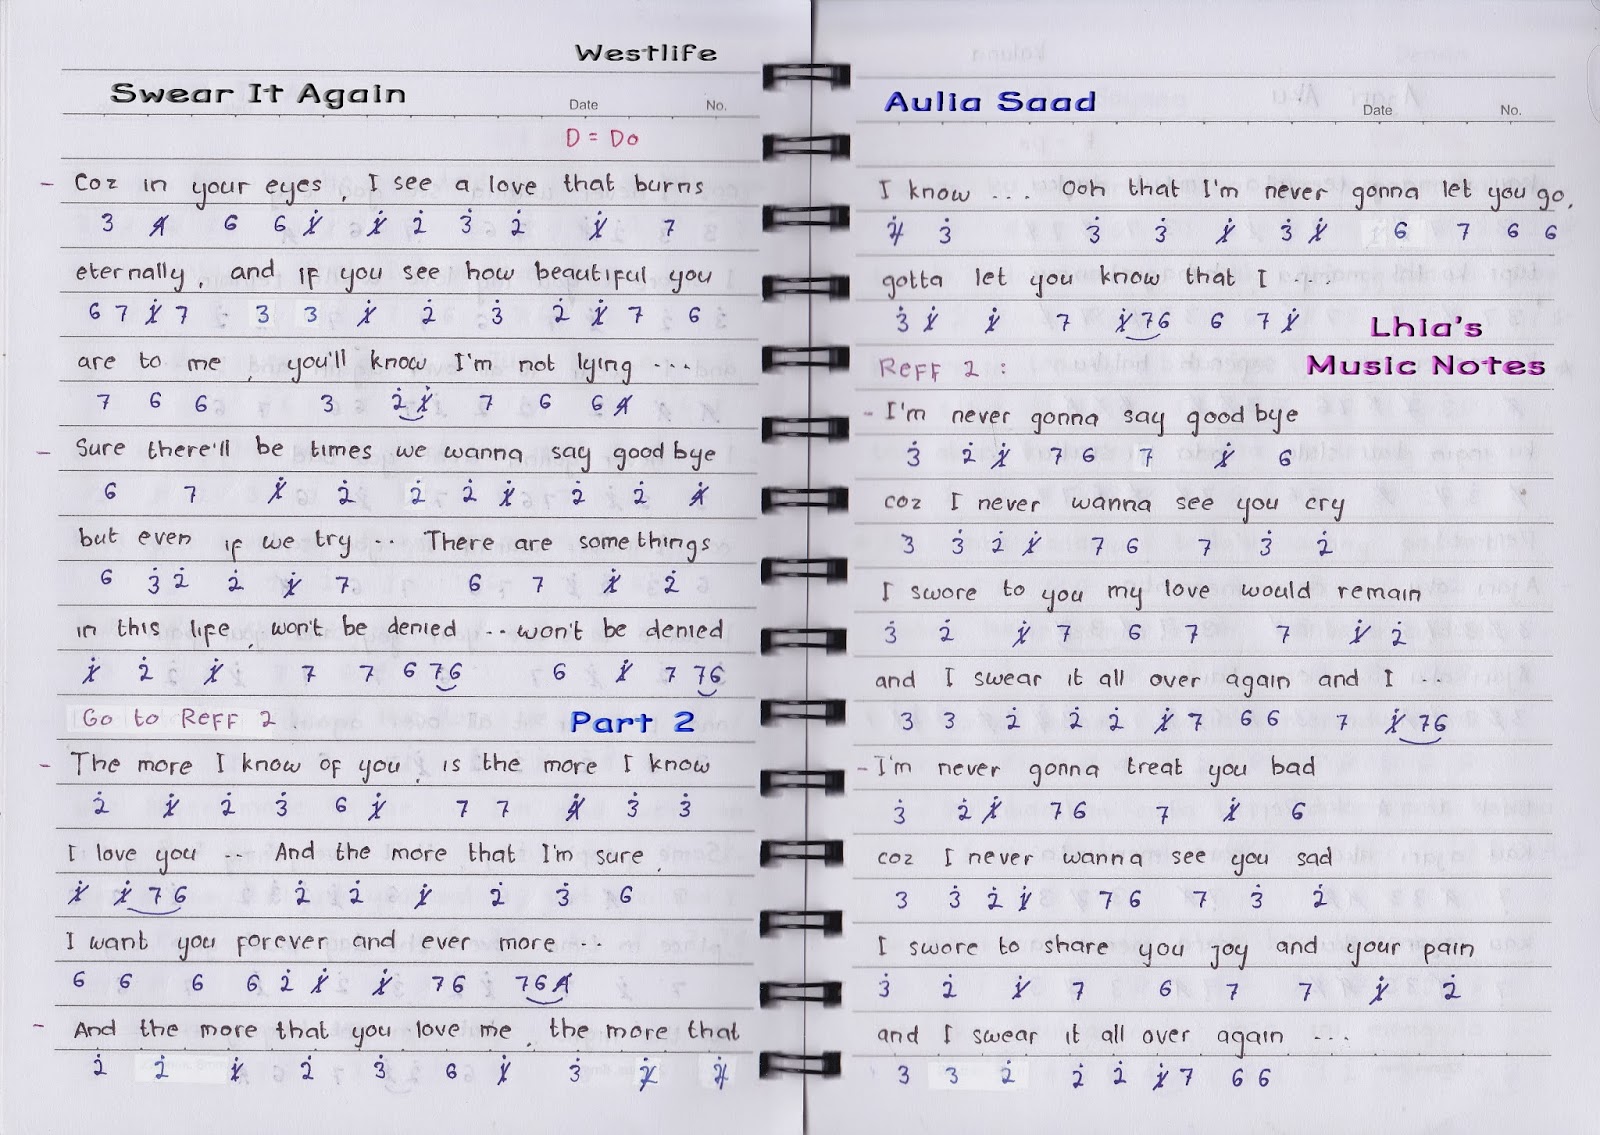 Westlife
Swear It Again
Date No.
D = Do
- Coz in your eyes, I see a love that burns
3 4̸ 6 6 1̸̇ 1̸̇ 2̇ 3̇ 2̇ 1̸̇ 7
eternally, and if you see how beautiful you
6 7 1̸̇ 7 3 3 1̸̇ 2̇ 3̇ 2̇ 1̸̇ 7 6
are to me, you'll know I'm not lying ...
7 6 6 3 2̇ 1̸̇ 7 6 6 4̸
- Sure there'll be times we wanna say good bye
6 7 1̸̇ 2̇ 2̇ 2̇ 1̸̇ 2̇ 2̇
but even if we try .. There are some things
6 3̇ 2̇ 2̇ 1̸̇ 7 6 7 1̸̇ 2̇
in this life, won't be denied .. won't be denied
1̸̇ 2̇ 1̸̇ 7 7 6 76 6 1̸̇ 7 76
Go to Reff 2 Part 2
- The more I know of you, is the more I know
2̇ 1̸̇ 2̇ 3̇ 6 1̸̇ 7 7 3̇ 3̇
I love you .. And the more that I'm sure,
1̸̇ 1̸̇ 7 6 2̇ 2̇ 1̸̇ 2̇ 3̇ 6
I want you forever and ever more ..
6 6 6 6 2̇ 1̸̇ 1̸̇ 76 764̸
- And the more that you love me, the more that
2̇ 2̇ 1̸̇ 2̇ 3̇ 6 1̸̇ 3̇
Aulia Saad
Date No.
I know ... Ooh that I'm never gonna let you go,
3̇ 3̇ 3̇ 1̸̇ 3̇ 1̸̇ 6 7 6 6
gotta let you know that I ....
3̇ 1̸̇ 1̸̇ 7 1̸̇76 6 7 1̸̇
Lhia's
Music Notes
Reff 2 :
- I'm never gonna say good bye
3̇ 2̇ 1̸̇ 7 6 7 1̸̇ 6
coz I never wanna see you cry
3 3̇ 2̇ 1̸̇ 7 6 7 3̇ 2̇
I swore to you my love would remain
3̇ 2̇ 1̸̇ 7 6 7 7 1̸̇ 2̇
and I swear it all over again and I ..
3 3 2̇ 2̇ 2̇ 1̸̇ 7 6 6 7 1̸̇ 76
- I'm never gonna treat you bad
3̇ 2̇ 1̸̇ 76 7 1̸̇ 6
coz I never wanna see you sad
3 3̇ 2̇ 1̸̇ 7 6 7 3̇ 2̇
I swore to share you joy and your pain
3̇ 2̇ 1̸̇ 7 6 7 7 1̸̇ 2̇
and I swear it all over again ...
3 3 2̇ 2̇ 2̇ 1̸̇ 7 6 6